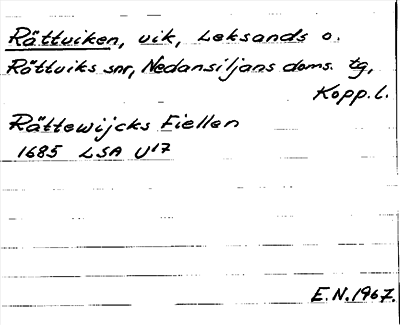 Rättviken, vik, Leksands o.
Rättviks snr, Nedansiljans doms. tg,
Kopp. l.
Rättewijcks Fiellen
1685 LSA U17
E.N. 1967.